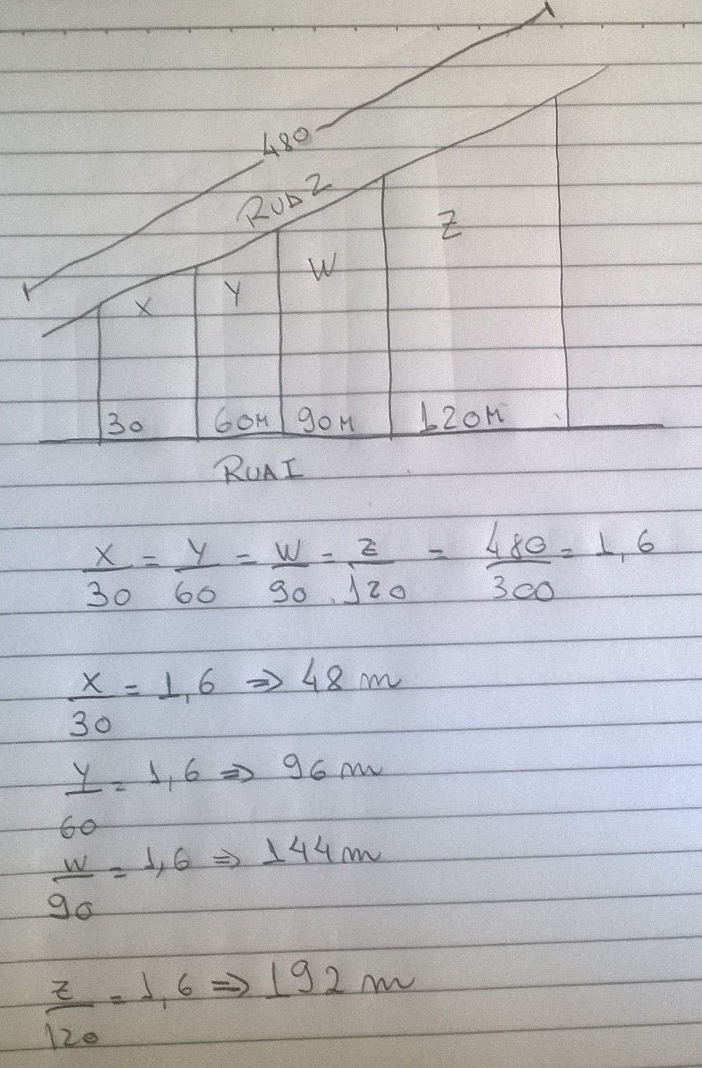 480
RUA 2
X Y W Z
30 60M 90M 120M
RUA I
X/30 = Y/60 = W/90 = Z/120 = 480/300 = 1,6
X/30 = 1,6 ⇒ 48 m
Y/60 = 1,6 ⇒ 96 m
W/90 = 1,6 ⇒ 144 m
Z/120 = 1,6 ⇒ 192 m